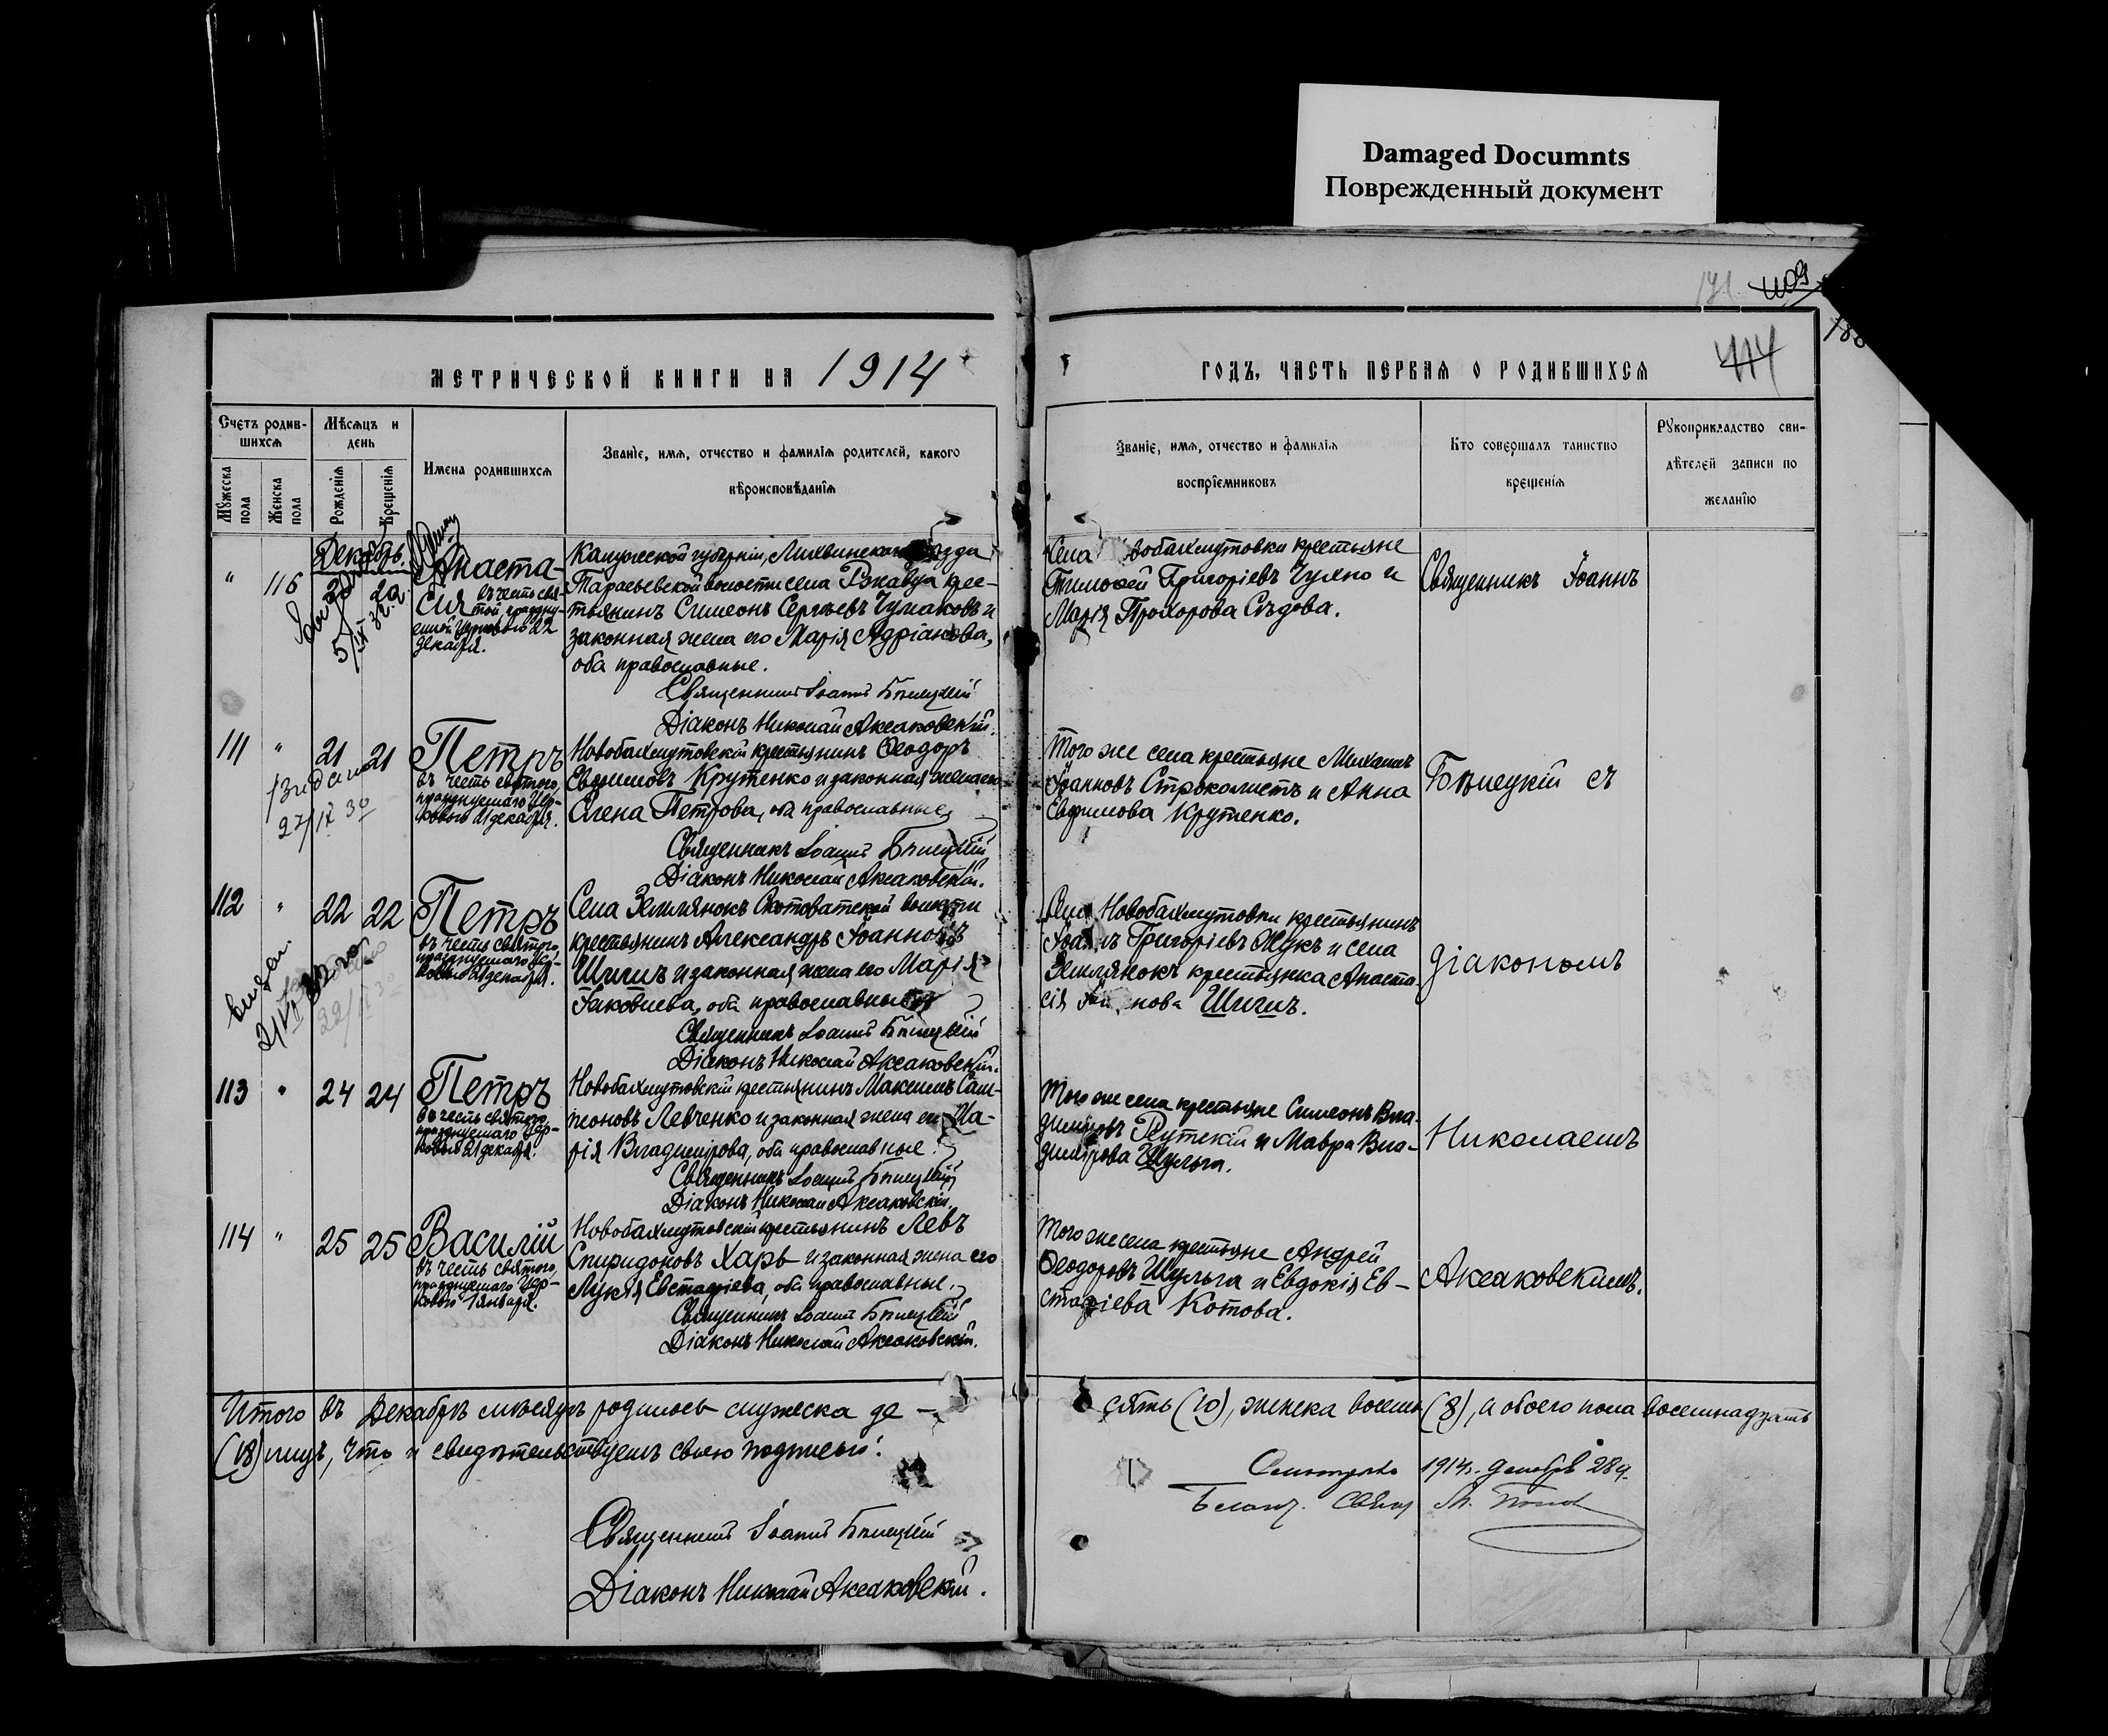 Damaged Documnts
Поврежденный документ
171 409
414
МЕТРИЧЕСКОЙ КНИГИ НА 1914
ГОДЪ, ЧАСТЬ ПЕРВАЯ О РОДИВШИХСЯ
Счетъ родив-
шихся
Мѣсяцъ и
день
Мужеска пола
Женска пола
Рожденія
Крещенія
Имена родившихся
Званіе, имя, отчество и фамилія родителей, какого
вѣроисповѣданія
Званіе, имя, отчество и фамилія
воспріемниковъ
Кто совершалъ таинство
крещенія
Рукоприкладство сви-
дѣтелей записи по
желанію
Декабрь.
" 116
Анаста-
сія въ честь свя-
той, праздну-
емой Церковью 22
декабря.
Калужской губерніи, Лихвинскаго уѣзда
волости села крес-
тьянинъ Симеонъ Сергѣевъ Чумаковъ и
законная жена его Марія Адріанова,
оба православные.
Священникъ Іоаннъ Бѣлецкій
Діаконъ Николай Аксаковскій.
Села Новобахмутовки крестьяне
Тимоѳей Григоріевъ и
Марія Прохорова Сѣдова.
Священникъ Іоаннъ
111 " 21 21 Петръ
въ честь святого,
празднуемаго Цер-
ковью 21 декабря.
27/IX 30
Новобахмутовскій крестьянинъ Ѳеодоръ
Евфимовъ Крутенко и законная жена его
Елена Петрова, оба православные
Священникъ Іоаннъ Бѣлецкій
Діаконъ Николай Аксаковскій.
Того же села крестьяне Михаилъ
Іоанновъ Строколистъ и Анна
Евфимова Крутенко.
Бѣлецкій съ
112 " 22 22 Петръ
въ честь святого,
празднуемаго Цер-
ковью 21 декабря.
Села Землянокъ Скотоватской волости
крестьянинъ Александръ Іоанновъ
Шигилъ и законная жена его Марія
Іаковлева, оба православные
Священникъ Іоаннъ Бѣлецкій
Діаконъ Николай Аксаковскій.
Села Новобахмутовки крестьянинъ
Іоаннъ Григоріевъ Жукъ и села
Землянокъ крестьянка Анаста-
сія Іоаннова Шигилъ.
діакономъ
113 " 24 24 Петръ
въ честь святого,
празднуемаго Цер-
ковью 21 декабря.
Новобахмутовскій крестьянинъ Максимъ Сам-
псоновъ Левченко и законная жена его Ма-
рія Владимірова, оба православные.
Священникъ Іоаннъ Бѣлецкій
Діаконъ Николай Аксаковскій.
Того же села крестьяне Симеонъ Вла-
диміровъ Реутскій и Мавра Вла-
димірова Шульга.
Николаемъ
114 " 25 25 Василій
въ честь святого,
празднуемаго Цер-
ковью 1 января.
Новобахмутовскій крестьянинъ Левъ
Спиридоновъ Харь и законная жена его
Лукія Евстафіева, оба православные.
Священникъ Іоаннъ Бѣлецкій
Діаконъ Николай Аксаковскій.
Того же села крестьяне Андрей
Ѳеодоровъ Шульга и Евдокія Ев-
стафіева Котова.
Аксаковскимъ.
Итого въ Декабрѣ мѣсяцѣ родилось мужеска де-
сять (10), женска восемь (8), а обоего пола восемнадцать
(18) лицъ, что и свидѣтельствуемъ своею подписью.
1914г. декабря 28 д.
Священникъ Іоаннъ Бѣлецкій
Діаконъ Николай Аксаковскій.